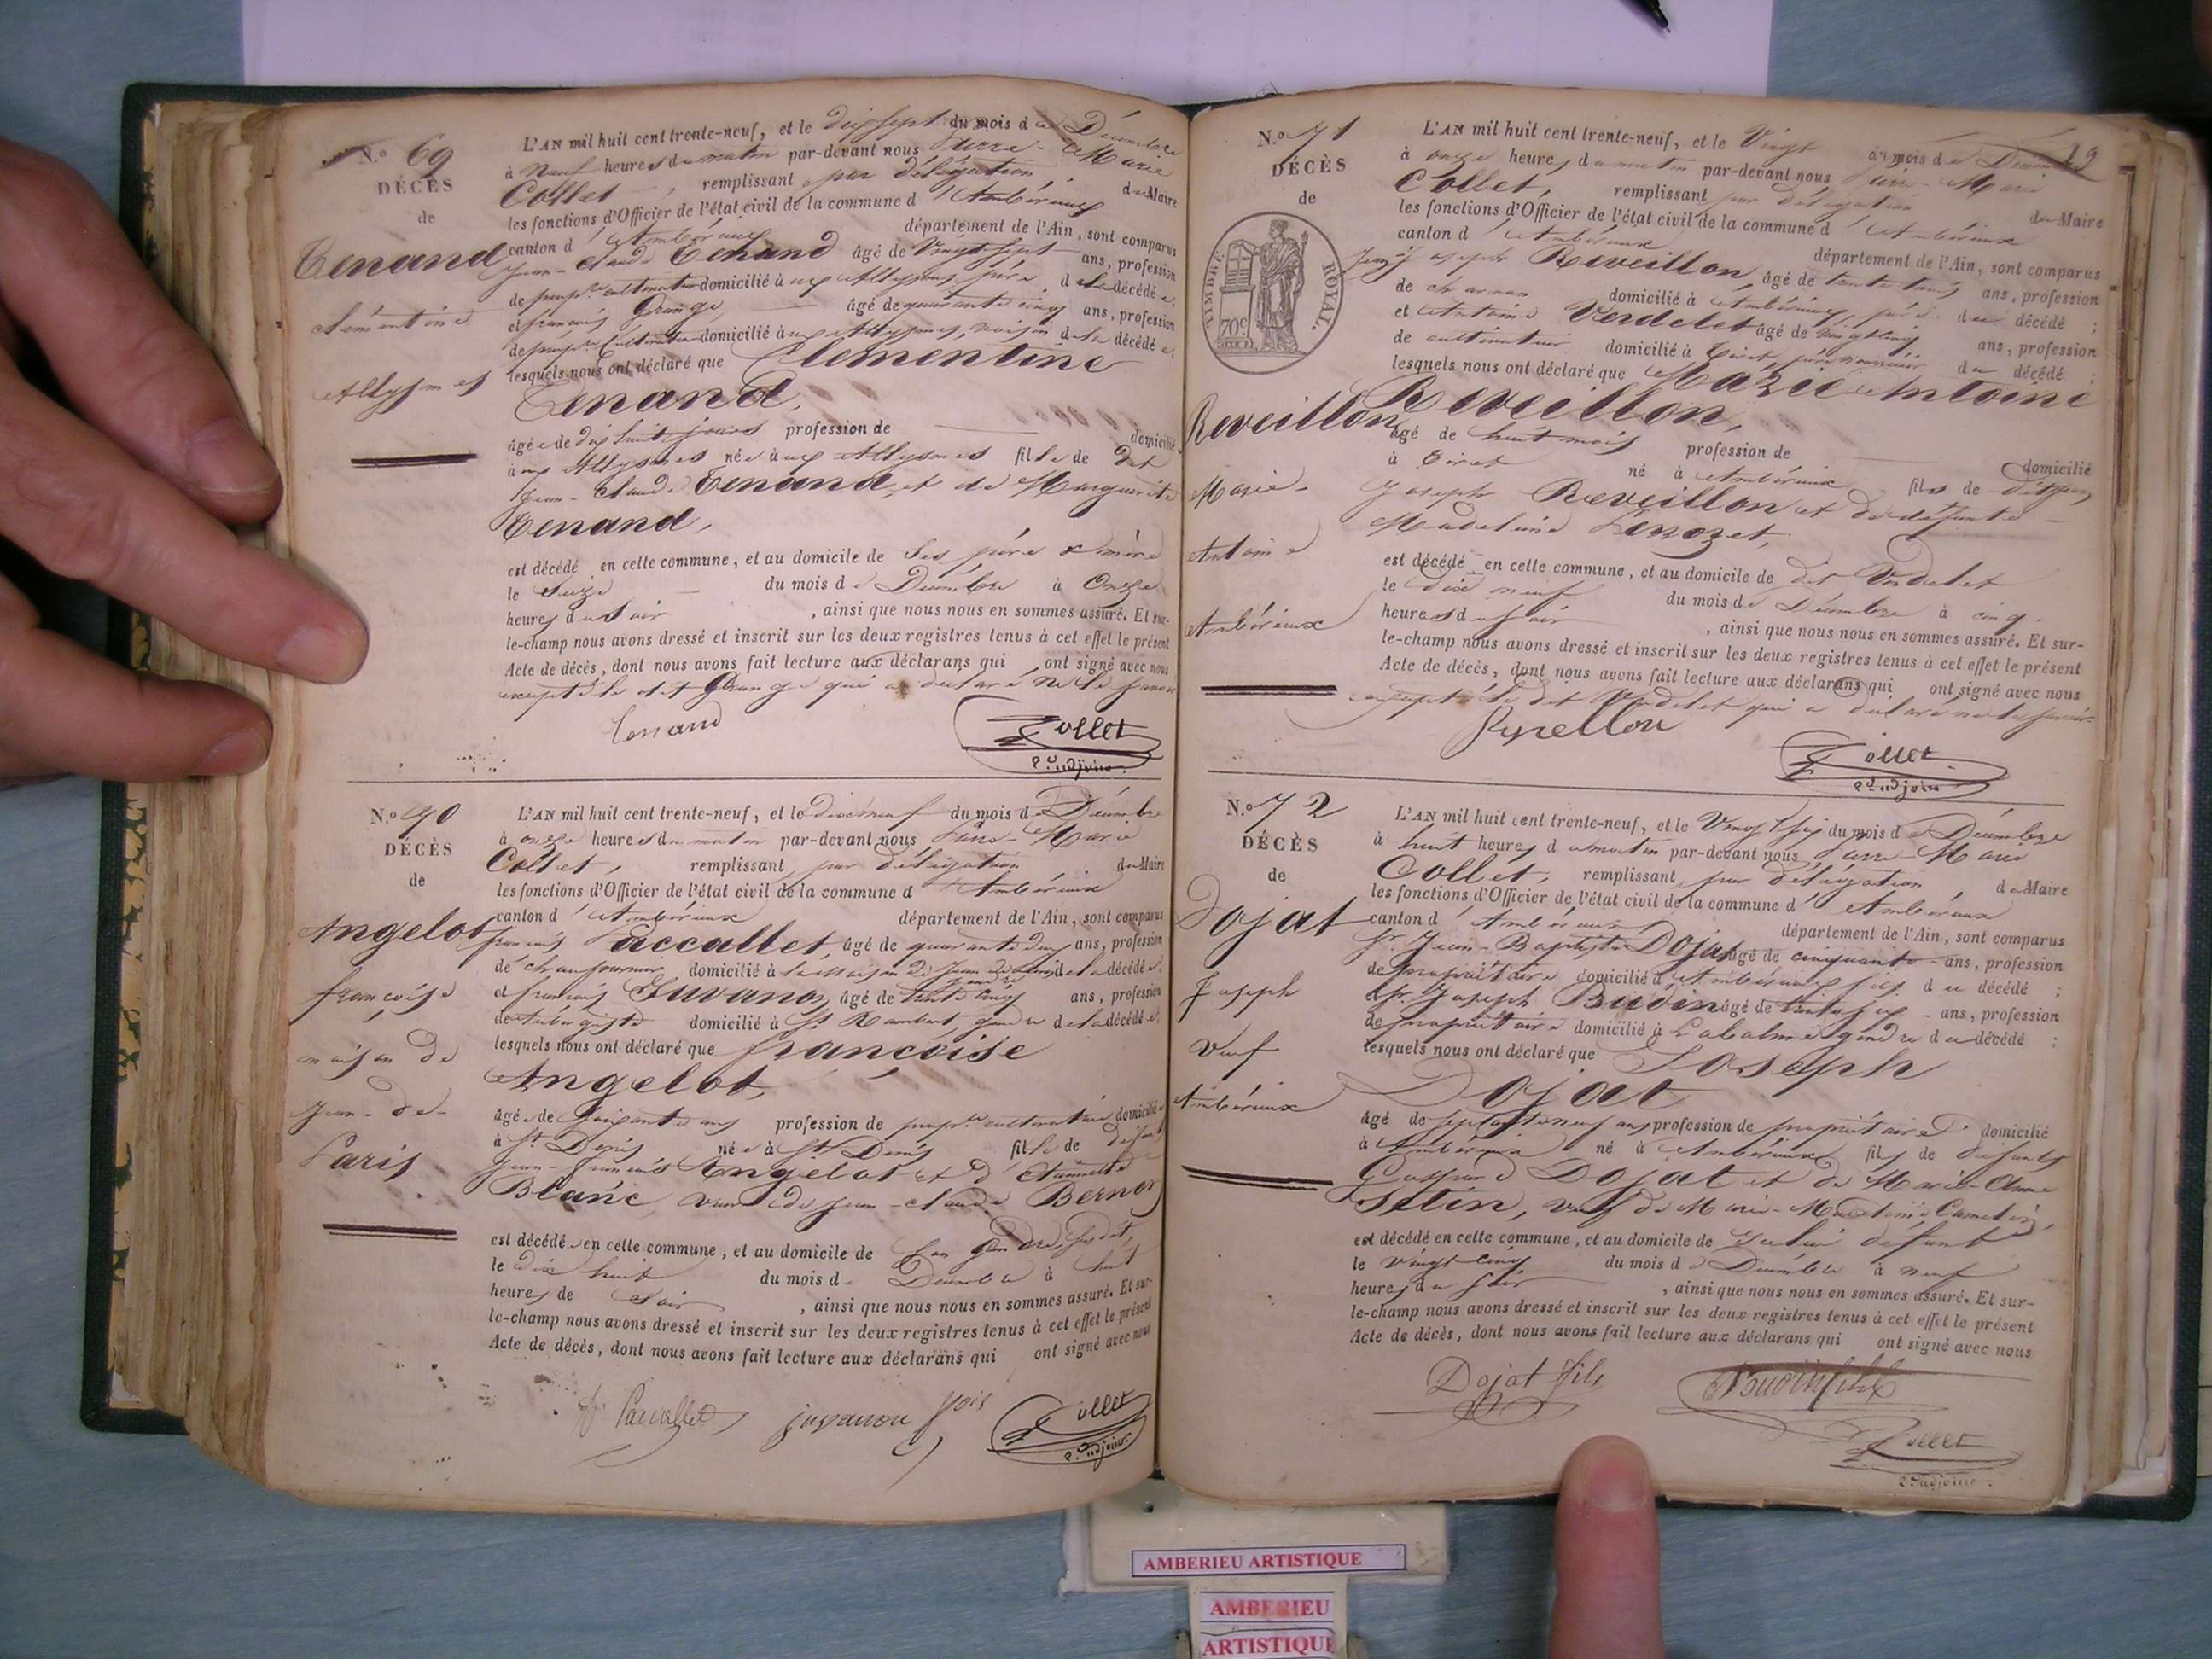 N.º 69
DÉCÈS
de
Tenand
Clémentine
Allymes
L'AN mil huit cent trente-neuf, et le dix sept du mois de Décembre
à neuf heures du matin par-devant nous Pierre-Marie
Collet remplissant par délégation du Maire
les fonctions d'Officier de l'état civil de la commune d'Ambérieux
canton d'Ambérieux département de l'Ain, sont comparus
Jean-Claude Tenand âgé de vingt sept ans, profession
de propre cultivateur domicilié à aux Allymes, père de la décédée
et françois Grange âgé de quarante cinq ans, profession
de propre cultivateur domicilié à aux Allymes, voisin de la décédée
lesquels nous ont déclaré que Clémentine
Tenand,
âgée de dix huit jours profession de domicilié
à aux Allymes née à aux Allymes fille de dit
Jean-Claude Tenand, et de Marguerite
Tenand,
est décédé en cette commune, et au domicile de Ses père & mère
le Seize du mois de Décembre à Onze
heures du soir, ainsi que nous nous en sommes assuré. Et sur-
le-champ nous avons dressé et inscrit sur les deux registres tenus à cet effet le présent
Acte de décès, dont nous avons fait lecture aux déclarans qui ont signé avec nous
excepté le dit Grange qui a déclaré ne le savoir
Tenand Collet
2.d adjoint
N.º 70
DÉCÈS
de
Angelot
françoise
maison de
Jean-de-
Paris
L'AN mil huit cent trente-neuf, et le dix neuf du mois de Décembre
à onze heures du matin par-devant nous Pierre-Marie
Collet, remplissant par délégation du Maire
les fonctions d'Officier de l'état civil de la commune d'Ambérieux
canton d'Ambérieux département de l'Ain, sont comparus
françois Paccallet, âgé de quarante deux ans, profession
de chaufournier domicilié à la Maison de Jean de Paris gendre de la décédée
et françois Juvanon, âgé de trente cinq ans, profession
de Aubergiste domicilié à St Rambert, gendre de la décédée
lesquels nous ont déclaré que françoise
Angelot,
âgée de Soixante ans profession de propre cultivatrice domicilié
à St Denis née à St Denis fille de défunts
Jean-françois Angelot et d'Etiennette
Blanc, veuve de Jean-Claude Bernot
est décédée en cette commune, et au domicile de Son Gendre susdit,
le dix huit du mois de Décembre à huit
heures de soir, ainsi que nous nous en sommes assuré. Et sur-
le-champ nous avons dressé et inscrit sur les deux registres tenus à cet effet le présent
Acte de décès, dont nous avons fait lecture aux déclarans qui ont signé avec nous
Paccallet juvanon fçois Collet
2.d adjoint
19
N.º 71
DÉCÈS
de
TIMBRE ROYAL.
70c
Reveillon
Marie-
Antoine
Ambérieux
L'AN mil huit cent trente-neuf, et le Vingt du mois de Décembre
à onze heures du matin par-devant nous Pierre-Marie
Collet, remplissant par délégation du Maire
les fonctions d'Officier de l'état civil de la commune d'Ambérieux
canton d'Ambérieux département de l'Ain, sont comparus
Joseph Reveillon âgé de trente trois ans, profession
de charron domicilié à Ambérieux, père du décédé ;
et Antoine Verdelet âgé de vingt cinq ans, profession
de cultivateur domicilié à Tiret, père nourricier du décédé ;
lesquels nous ont déclaré que Marie Antoine
Reveillon,
âgé de huit mois profession de domicilié
à Tiret né à Ambérieux fils de dit
Joseph Reveillon et de défunte
Madeleine
est décédé en cette commune, et au domicile de dit Verdelet
le dix neuf du mois de Décembre à cinq
heures du soir, ainsi que nous nous en sommes assuré. Et sur-
le-champ nous avons dressé et inscrit sur les deux registres tenus à cet effet le présent
Acte de décès, dont nous avons fait lecture aux déclarans qui ont signé avec nous
excepté le dit Verdelet qui a déclaré ne le savoir
Collet
2.d adjoint
N.º 72
DÉCÈS
de
Dojat
Joseph
Veuf
Ambérieux
L'AN mil huit cent trente-neuf, et le Vingt six du mois de Décembre
à huit heures du matin par-devant nous Pierre-Marie
Collet, remplissant par délégation du Maire
les fonctions d'Officier de l'état civil de la commune d'Ambérieux
canton d'Ambérieux département de l'Ain, sont comparus
Sr Jean-Baptiste Dojat âgé de cinquante ans, profession
de propriétaire domicilié à Ambérieux fils du décédé ;
et Sr Joseph Budin âgé de trente six ans, profession
de propriétaire domicilié à Labalme gendre du décédé ;
lesquels nous ont déclaré que Joseph
Dojat
âgé de septante neuf ans profession de propriétaire domicilié
à Ambérieux né à Ambérieux fils de défunts
Gaspard Dojat et de Marie-Anne
Setin, veuf de Marie-Madeleine
est décédé en cette commune, et au domicile de défunt
le vingt cinq du mois de Décembre à neuf
heures du soir, ainsi que nous nous en sommes assuré. Et sur-
le-champ nous avons dressé et inscrit sur les deux registres tenus à cet effet le présent
Acte de décès, dont nous avons fait lecture aux déclarans qui ont signé avec nous
Dojat fils
Collet
2.d adjoint
AMBERIEU ARTISTIQUE
AMBERIEU
ARTISTIQUE